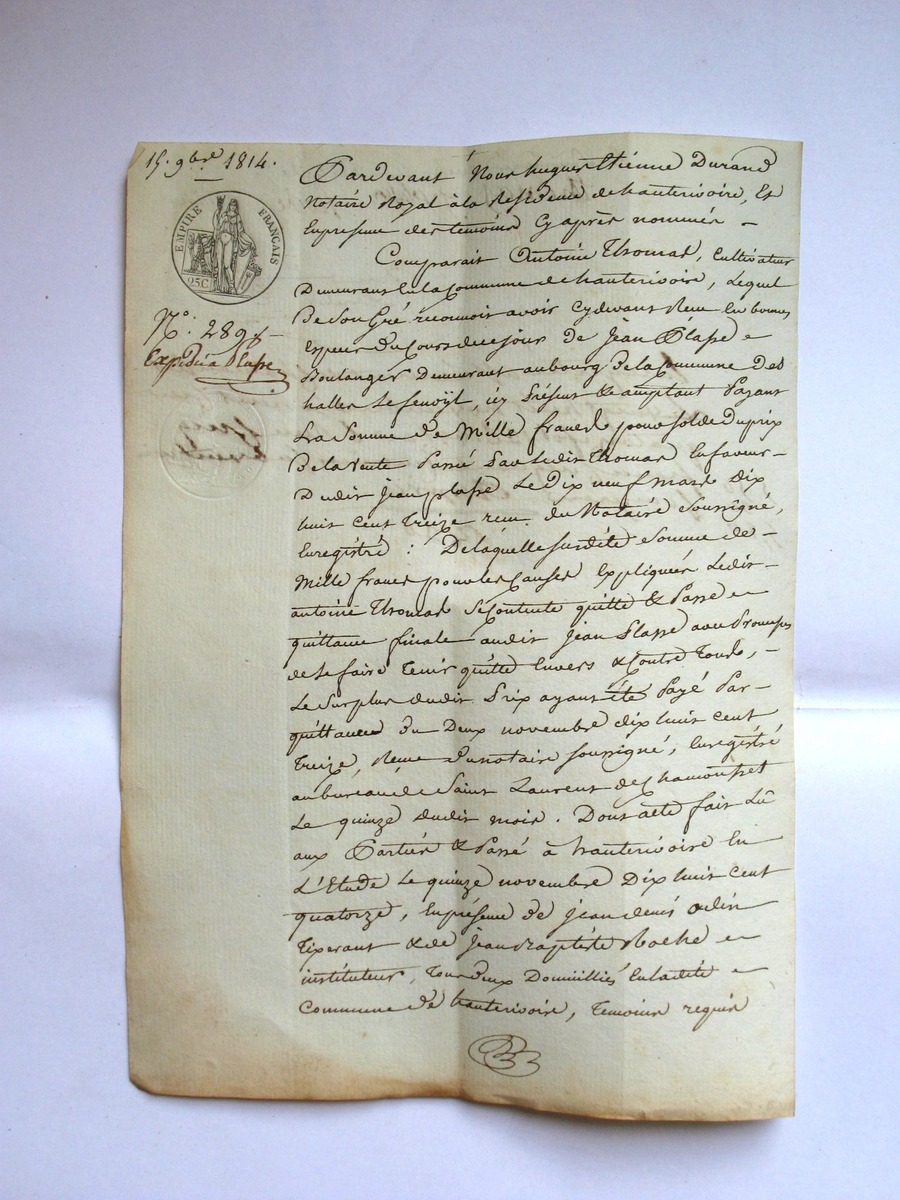 15. 9bre 1814.
EMPIRE FRANÇAIS
25C
N°. 289
Expédié à Plasse
Pardevant Nous hugues Etienne Durand
Notaire Royal à la Residence de hauterivoire, Et
En presence des temoins Cy après nommés –
Comparait Antoine Thomas, Cultivateur
Demeurant En la Commune de hauterivoire, Lequel
De Son Gré reconnoit avoir Cydevant Reçu En bonnes
Especes du Cours de ce jour de Jean Plasse
Boulanger Demeurant au bourg De la Commune des
halles Le fenoÿl, icy Présent & acceptant Payant
La Somme de Mille francs pour Solde du prix
De la Vente Passé Par Ledit Thomas En faveur
Dudit jean plasse Le Dix neuf mars Dix
huit Cent Treize recu du Notaire Soussigné,
Enregistré : De laquelle Susdite Somme de –
Mille francs pour les Causes Expliquées Ledit –
antoine Thomas Se Contente quitte & Passe
quittance finale audit Jean Plasse avec Promesses
de le faire Tenir quitte Envers & Contre Tous, –
Le Surplus dudit Prix ayant été Payé Par –
quittance du Deux novembre dix huit Cent
Treize, Reçue du notaire Soussigné, Enregistré
au bureau de Saint Laurent de Chamousset
Le quinze dudit mois. Dont acte fait Lû
aux Parties & Passé à hauterivoire En
L'Etude Le quinze novembre Dix huit Cent
quatorze, En présence de jean denis odin
Tixerant & de Jean Baptiste Roche
instituteur, Tous deux Domiciliés En ladite
Commune de hauterivoire, Temoins requis